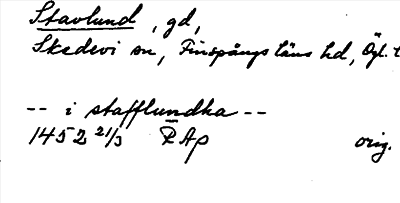 Stavlund, gd,
Skedevi sn, Finspångs läns hd, Ögl.
-- i stafflundha --
1452 21/3 RAp orig.